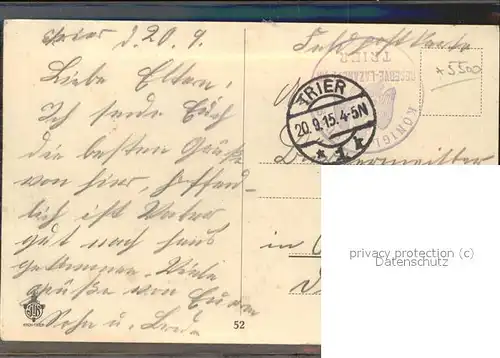 Trier d. 20. 9.
Liebe Eltern!
Ich sende Euch
die besten Grüße
von hier, hoffent-
lich ist Vater
gut nach haus
gekommen. Viele
grüße von Euren
Sohn u.
52
Feldpostkarte
KÖNIGL.
RESERVE-LAZARETT
TRIER
+5500
TRIER
20.9.15.4-5N
* 1 k
in
privacy protection (c)
Datenschutz